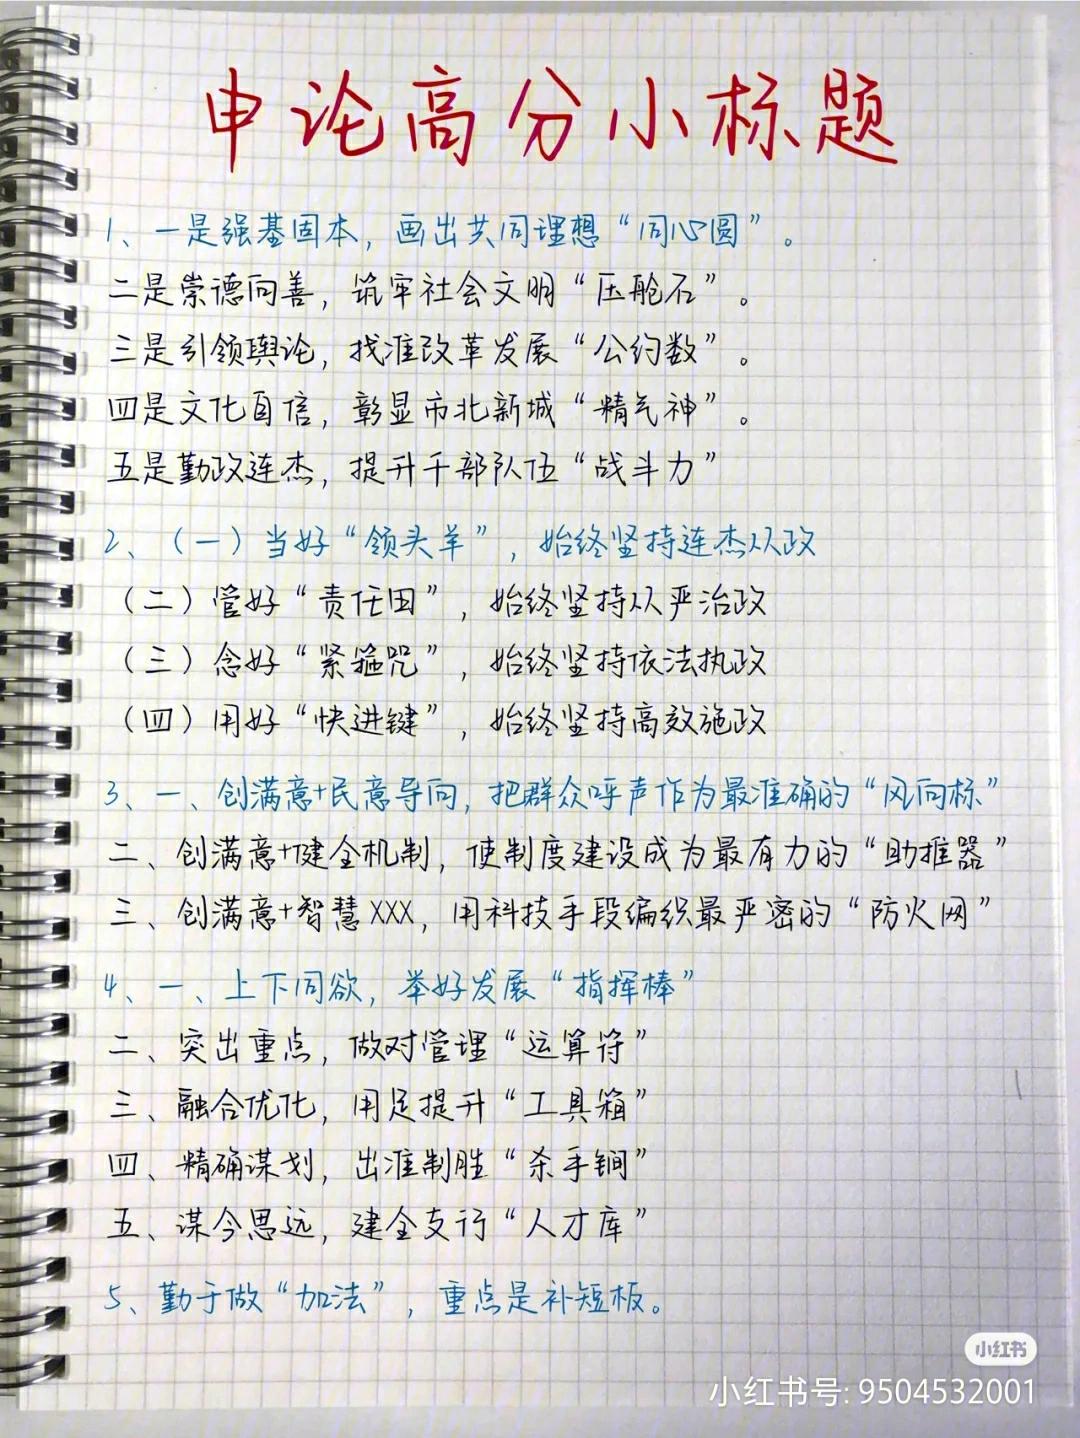 申论高分小标题
1、一是强基固本，画出共同理想“同心圆”。
二是崇德向善，筑牢社会文明“压舱石”。
三是引领舆论，找准改革发展“公约数”。
四是文化自信，彰显市北新城“精气神”。
五是勤政连杰，提升干部队伍“战斗力”
2、（一）当好“领头羊”，始终坚持连杰从政
（二）管好“责任田”，始终坚持从严治政
（三）念好“紧箍咒”，始终坚持依法执政
（四）用好“快进键”，始终坚持高效施政
3、一、创满意+民意导向，把群众呼声作为最准确的“风向标”
二、创满意+健全机制，使制度建设成为最有力的“助推器”
三、创满意+智慧XXX，用科技手段编织最严密的“防火网”
4、一、上下同欲，举好发展“指挥棒”
二、突出重点，做对管理“运算符”
三、融合优化，用足提升“工具箱”
四、精确谋划，出准制胜“杀手锏”
五、谋今思远，建全支行“人才库”
5、勤于做“加法”，重点是补短板。
小红书
小红书号: 9504532001